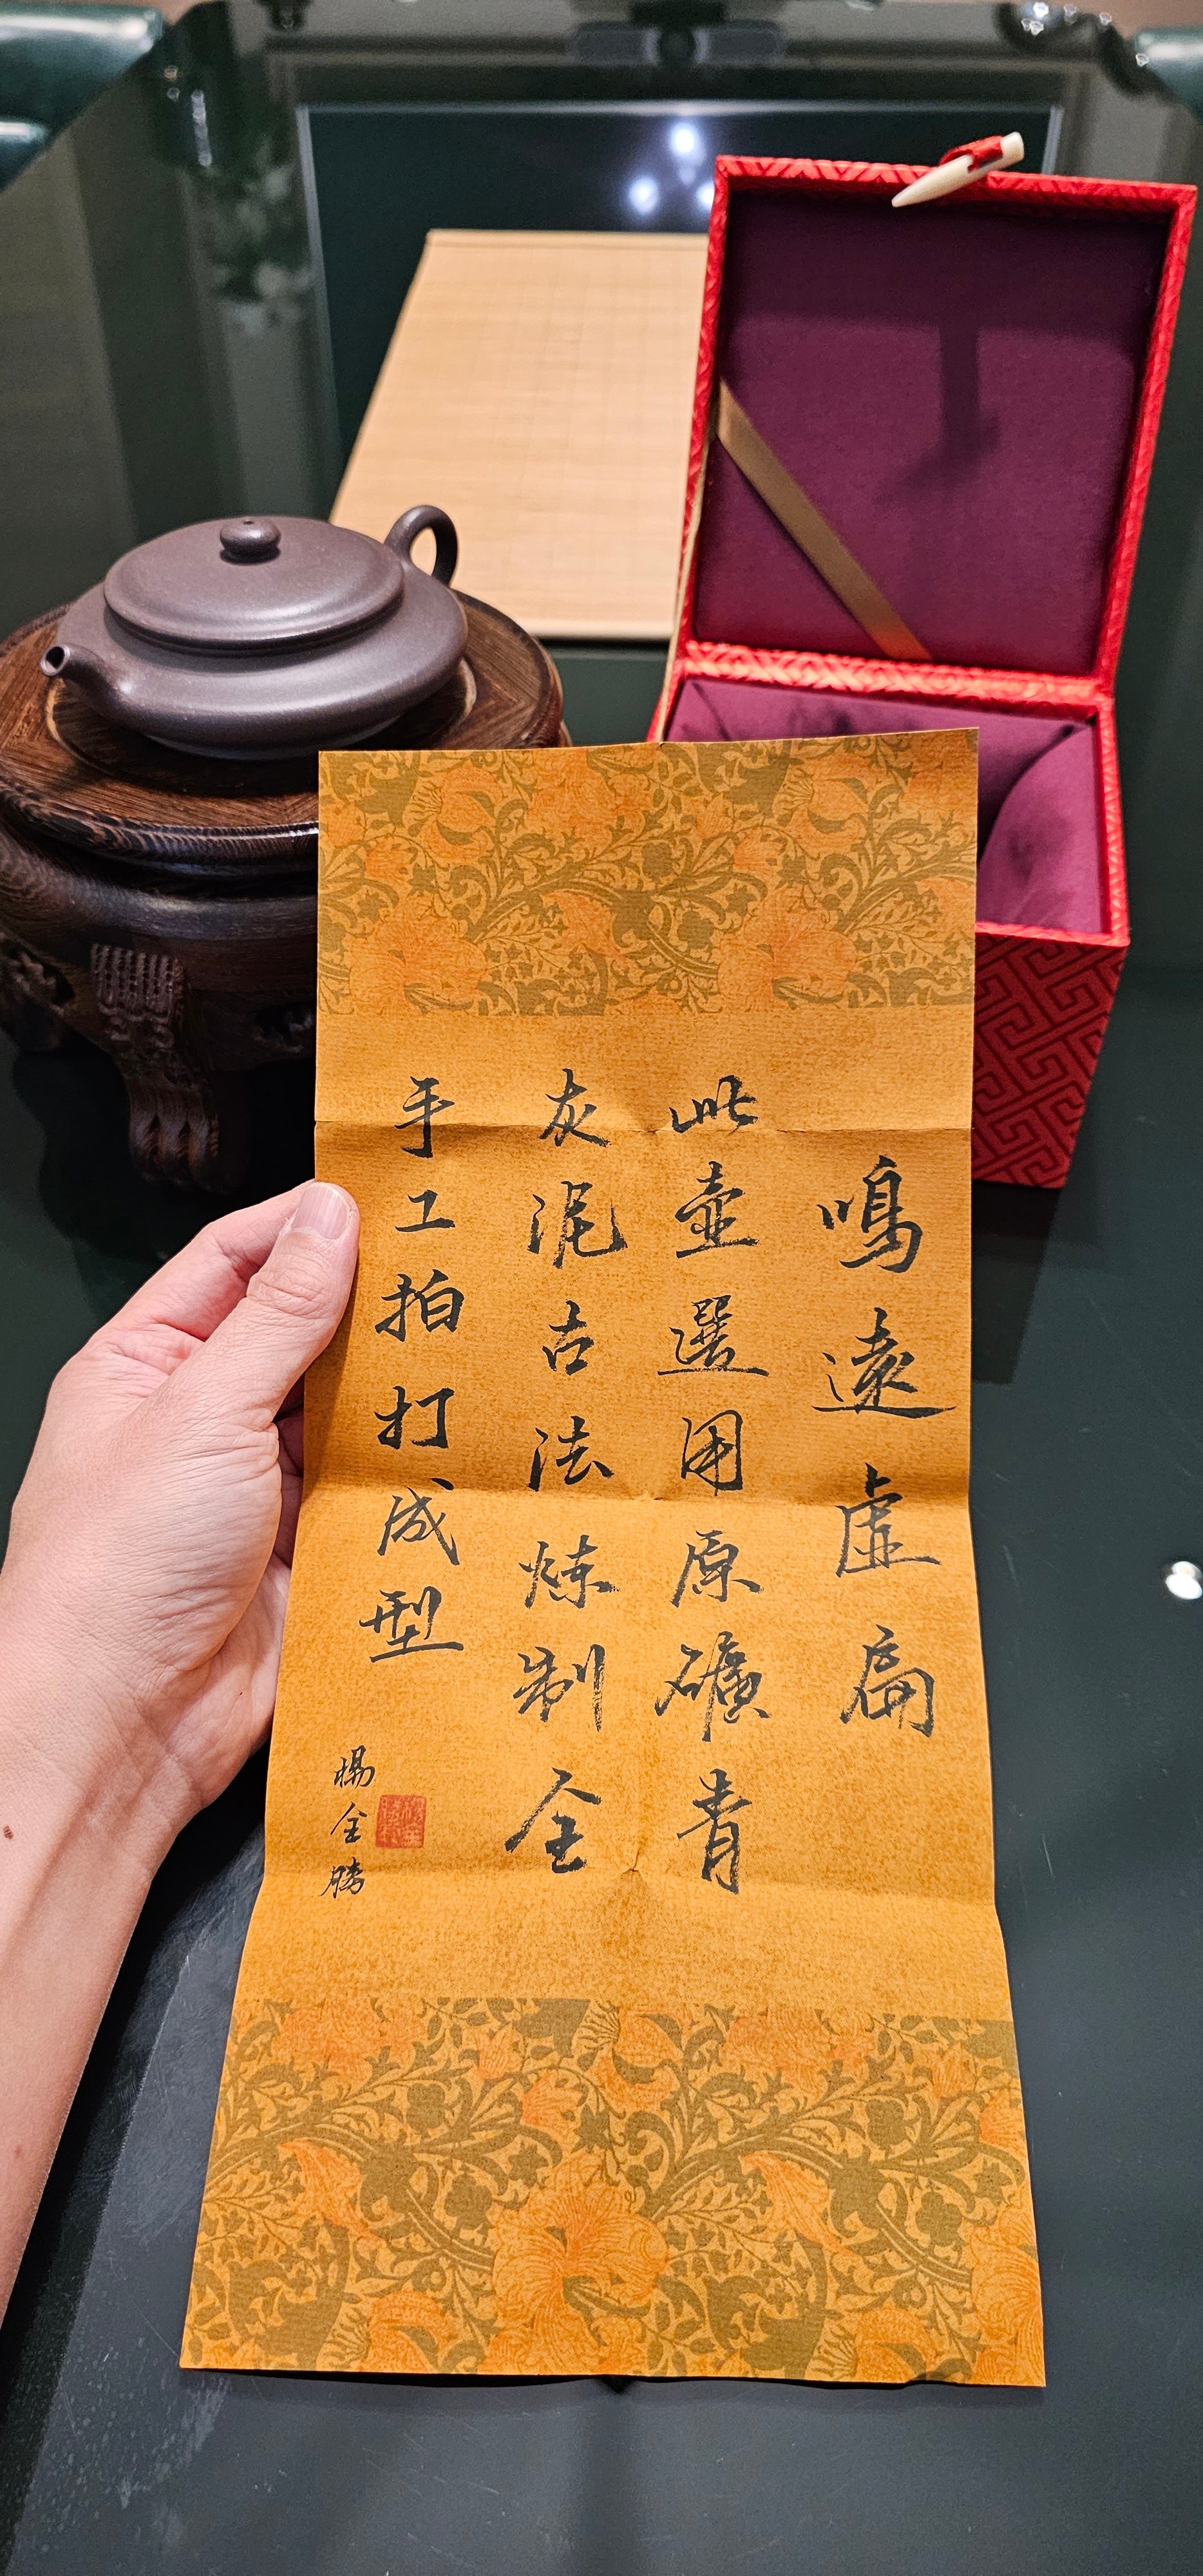 鳴遠虛扁
此壺選用原礦青
灰泥古法炼制全
手工拍打成型
楊全勝